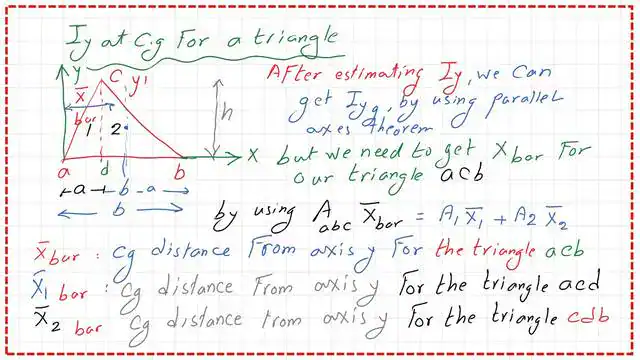 Iy at C.g For a triangle
y
C y1
x
bar
1 2
h
a d b x
a b-a
b
AFter estimating Iy, we Can
get Iyg, by using parallel
axes theorem
but we need to get Xbar For
our triangle acb
by using A abc X̅bar = A1 X̅1 + A2 X̅2
X̅bar : cg distance From axis y For the triangle acb
X̅1 bar : cg distance From axis y For the triangle acd
X̅2 bar cg distance From axis y For the triangle cdb